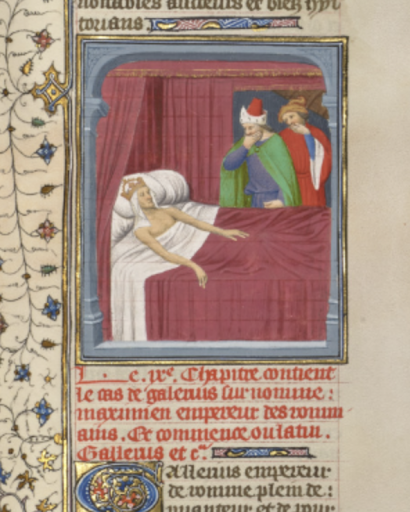 notables anciens et diez ypi
toriaus
Le .ixe. Chapitre contient
le cas de galerius surnomme:
maximien empereur des romm
ains. Et commence ou latin.
Gallerius et ca.
Gallerius empereur
de romme plein de: